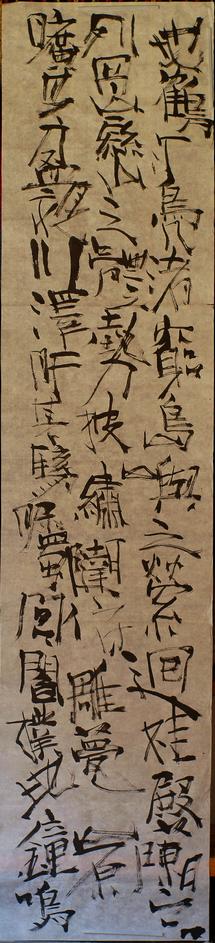 地鶴汀鳧渚窮島嶼之縈迴桂殿蘭宮
列岡巒之體勢披繡闥俯雕甍山原
曠其盈視川澤盱其駭矚閭閻撲地鐘鳴